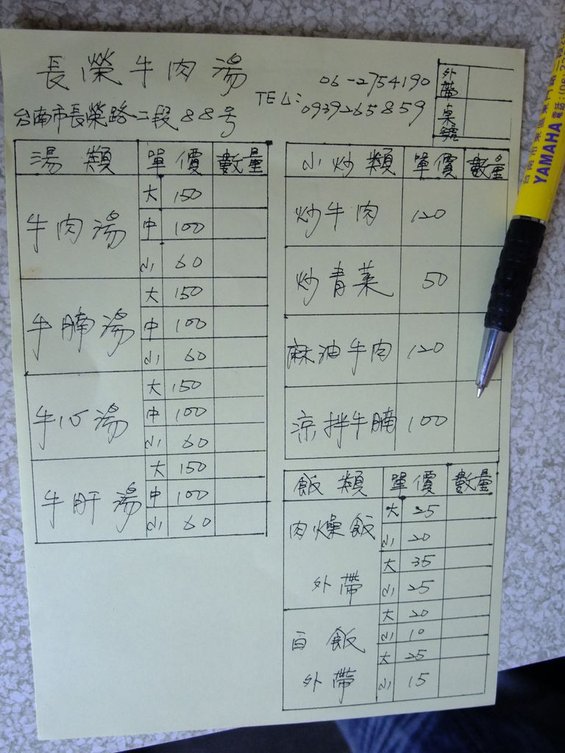 長榮牛肉湯
台南市長榮路二段88号
TEL: 06-2754190
0939265859
外帶
桌號
湯類 單價 數量
牛肉湯 大 150
中 100
小 60
牛腩湯 大 150
中 100
小 60
牛心湯 大 150
中 100
小 60
牛肝湯 大 150
中 100
小 60
小炒類 單價 數量
炒牛肉 120
炒青菜 50
麻油牛肉 120
涼拌牛腩 100
飯類 單價 數量
肉燥飯 大 25
小 20
外帶 大 35
小 25
白飯 大 20
小 10
外帶 大 25
小 15
YAMAHA